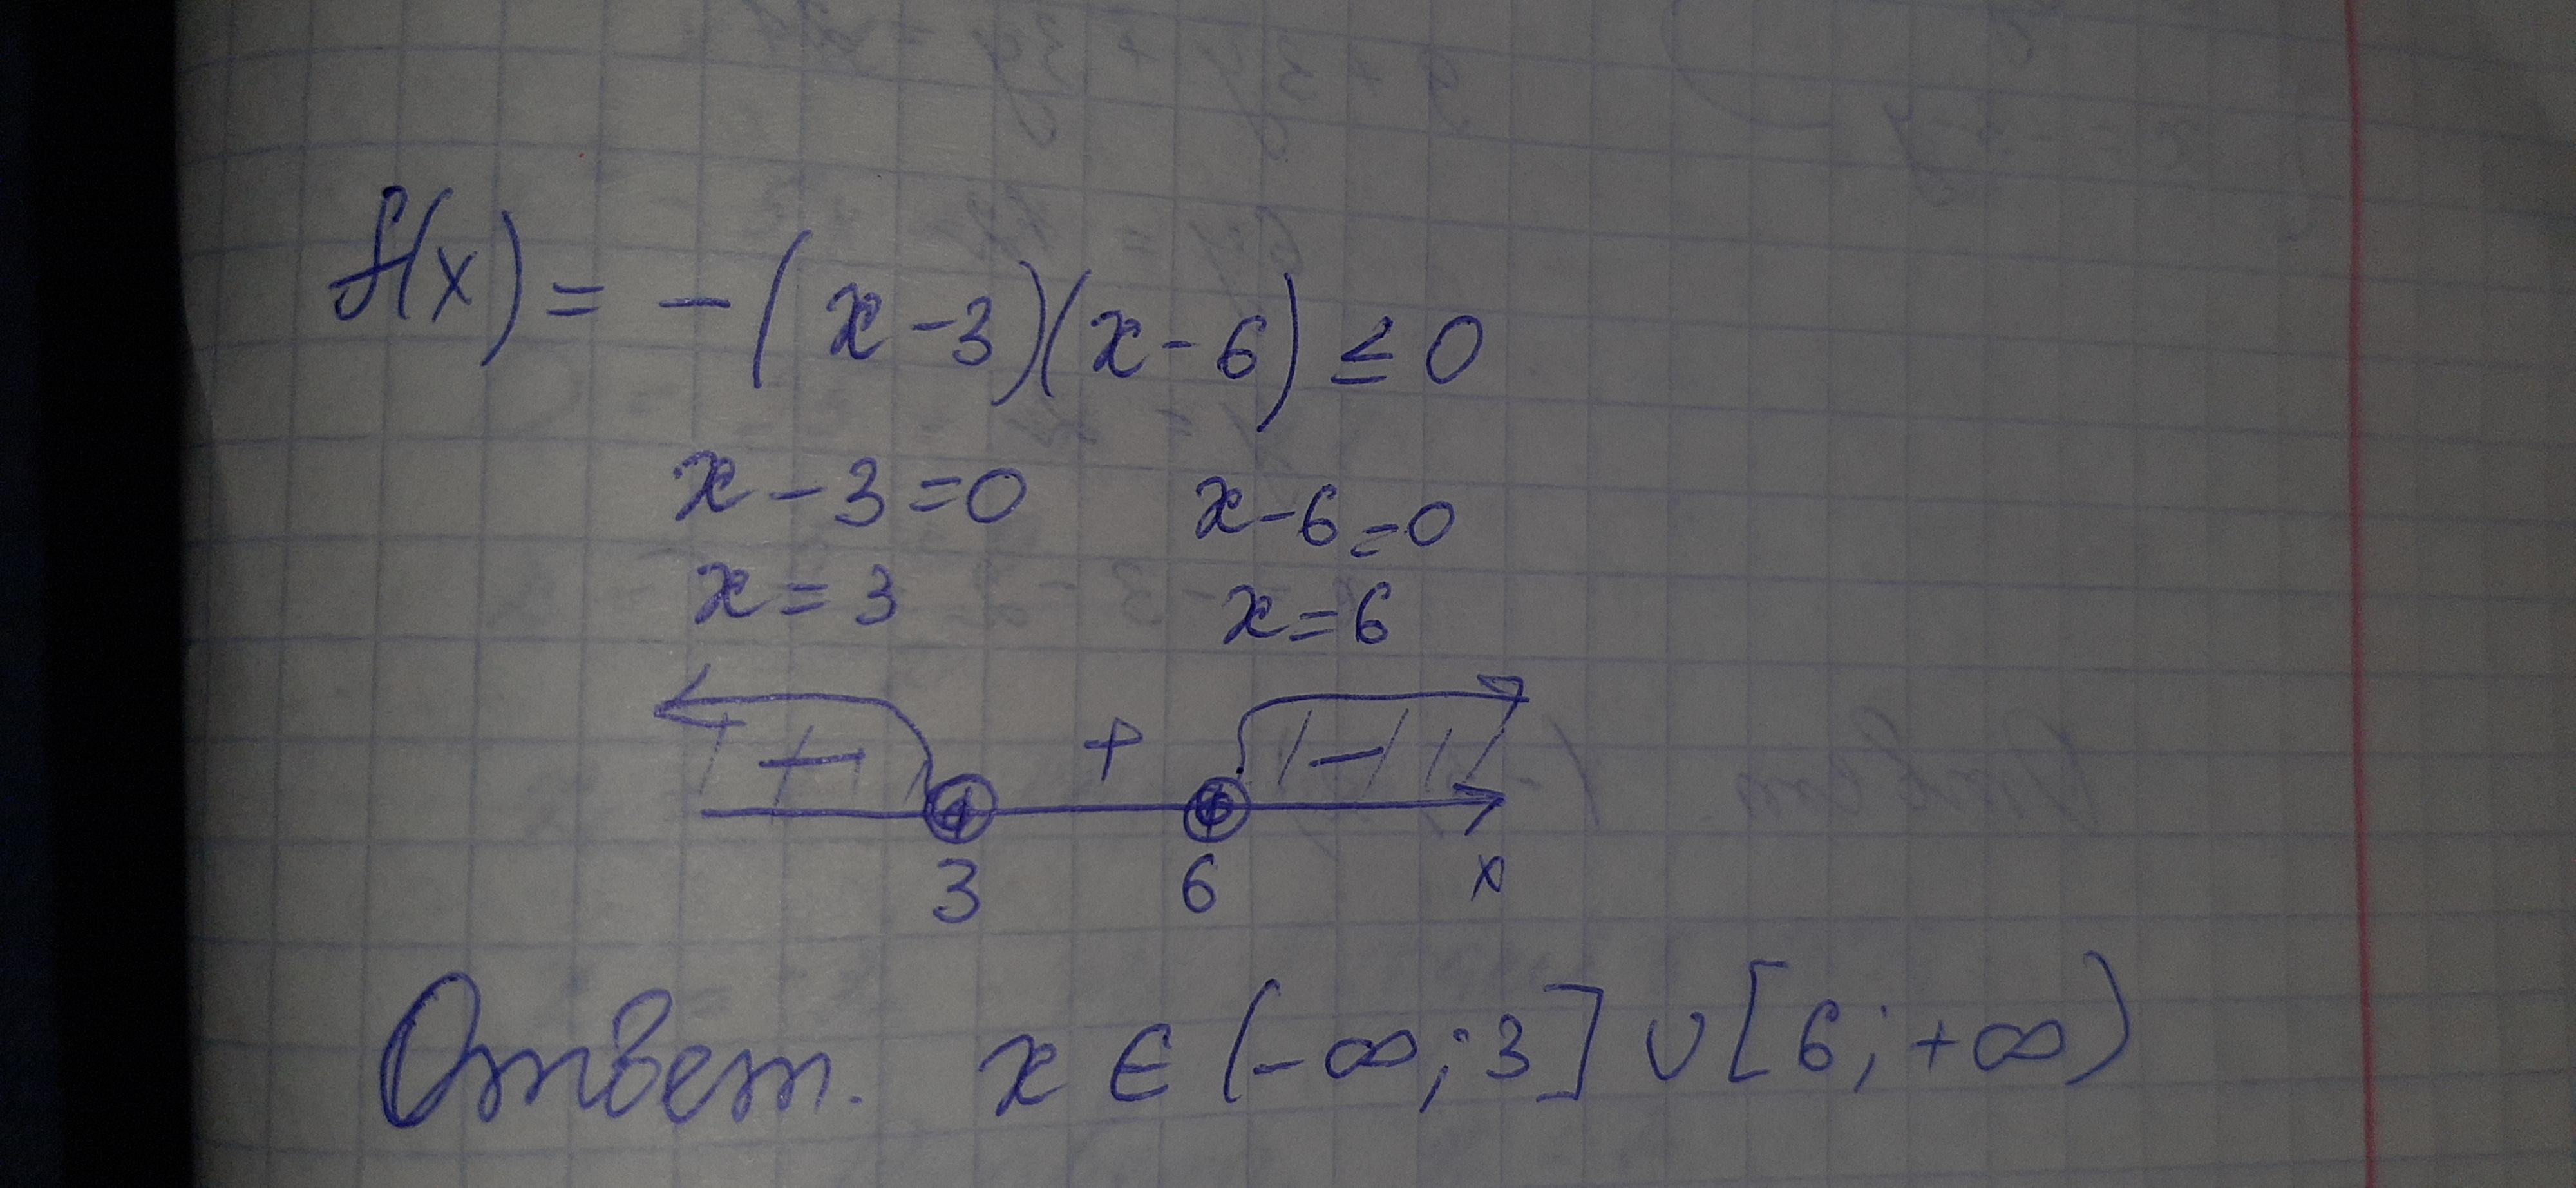 f(x) = -(x-3)(x-6) ≤ 0
x-3=0 x-6=0
x=3 x=6
- + -
3 6 x
Ответ. x ∈ (-∞; 3] ∪ [6; +∞)